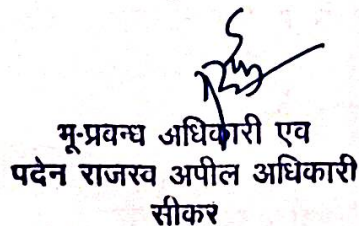 भू-प्रवन्ध अधिकारी एव
पदेन राजस्व अपील अधिकारी
सीकर